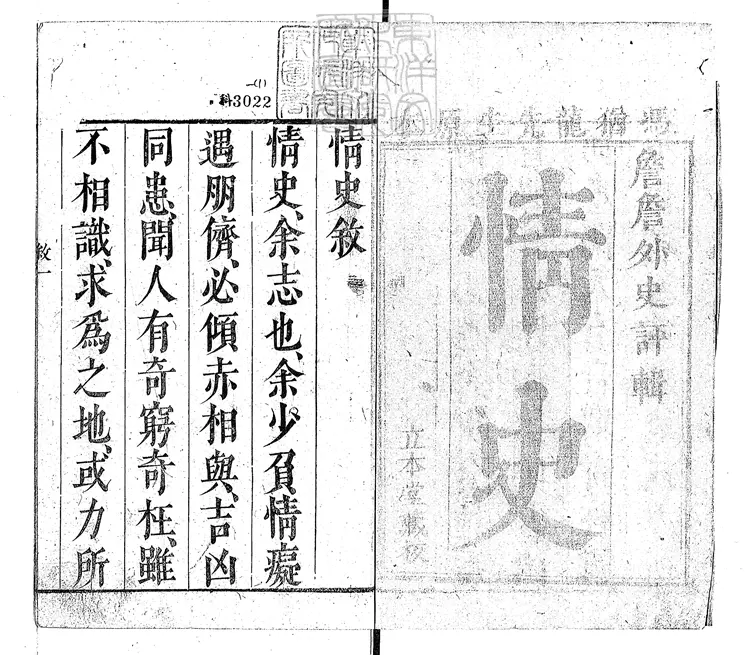 馮猶龍先生原本
詹詹外史評輯
情史
立本堂藏板
科3022
(1)
情史敘
情史、余志也、余少負情癡
遇朋儕、必傾赤相與、吉凶
同患、聞人有奇窮奇枉、雖
不相識、求爲之地、或力所
敘一